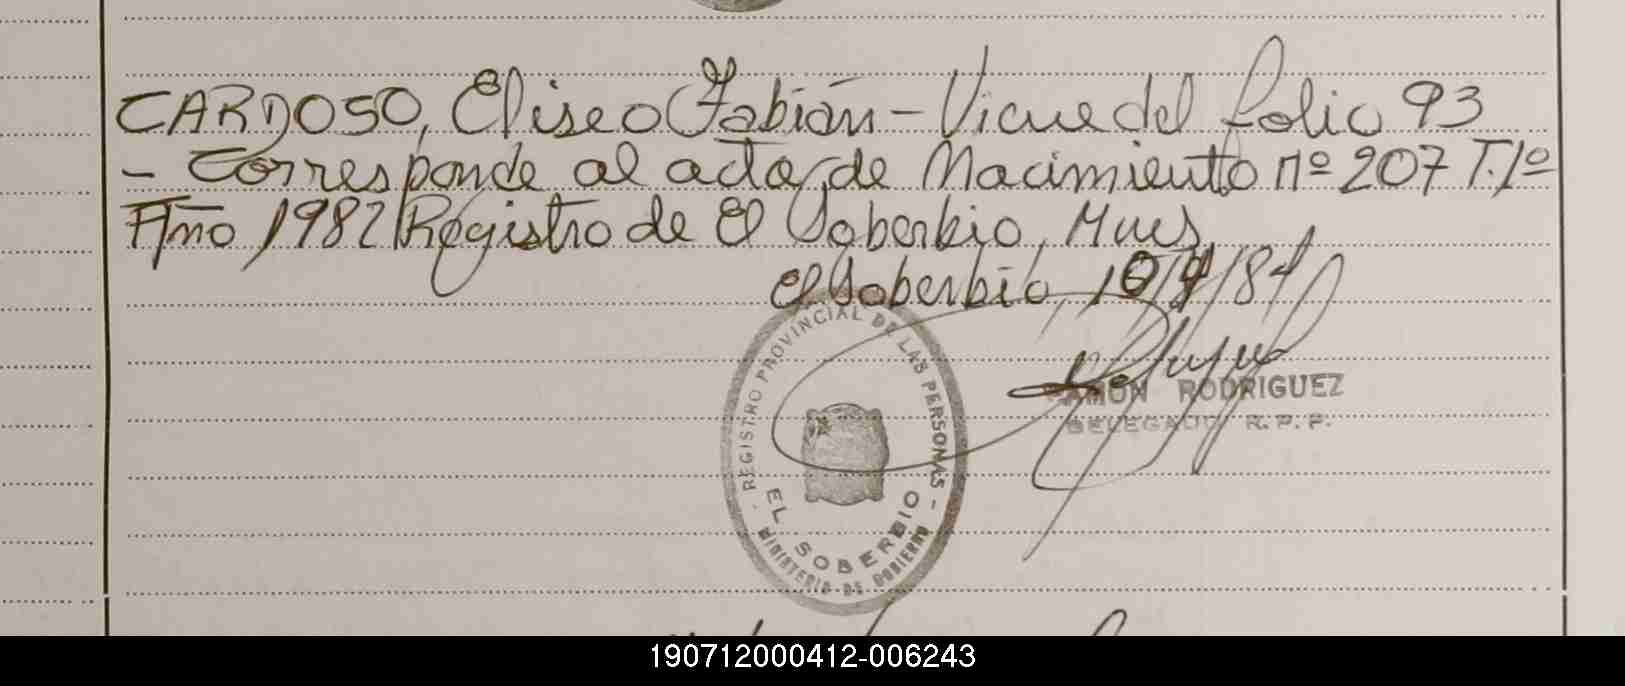 CARDOSO, Eliseo Fabián - Viene del folio 93
- Corresponde al acta de Nacimiento nº 207 T. 1º
Año 1982 Registro de El Soberbio, Mnes.
El Soberbio, 10/9/84
REGISTRO PROVINCIAL DE LAS PERSONAS -
EL SOBERBIO
MINISTERIO DE GOBIERNO
RAMON RODRIGUEZ
DELEGADO R. P. P.
190712000412-006243